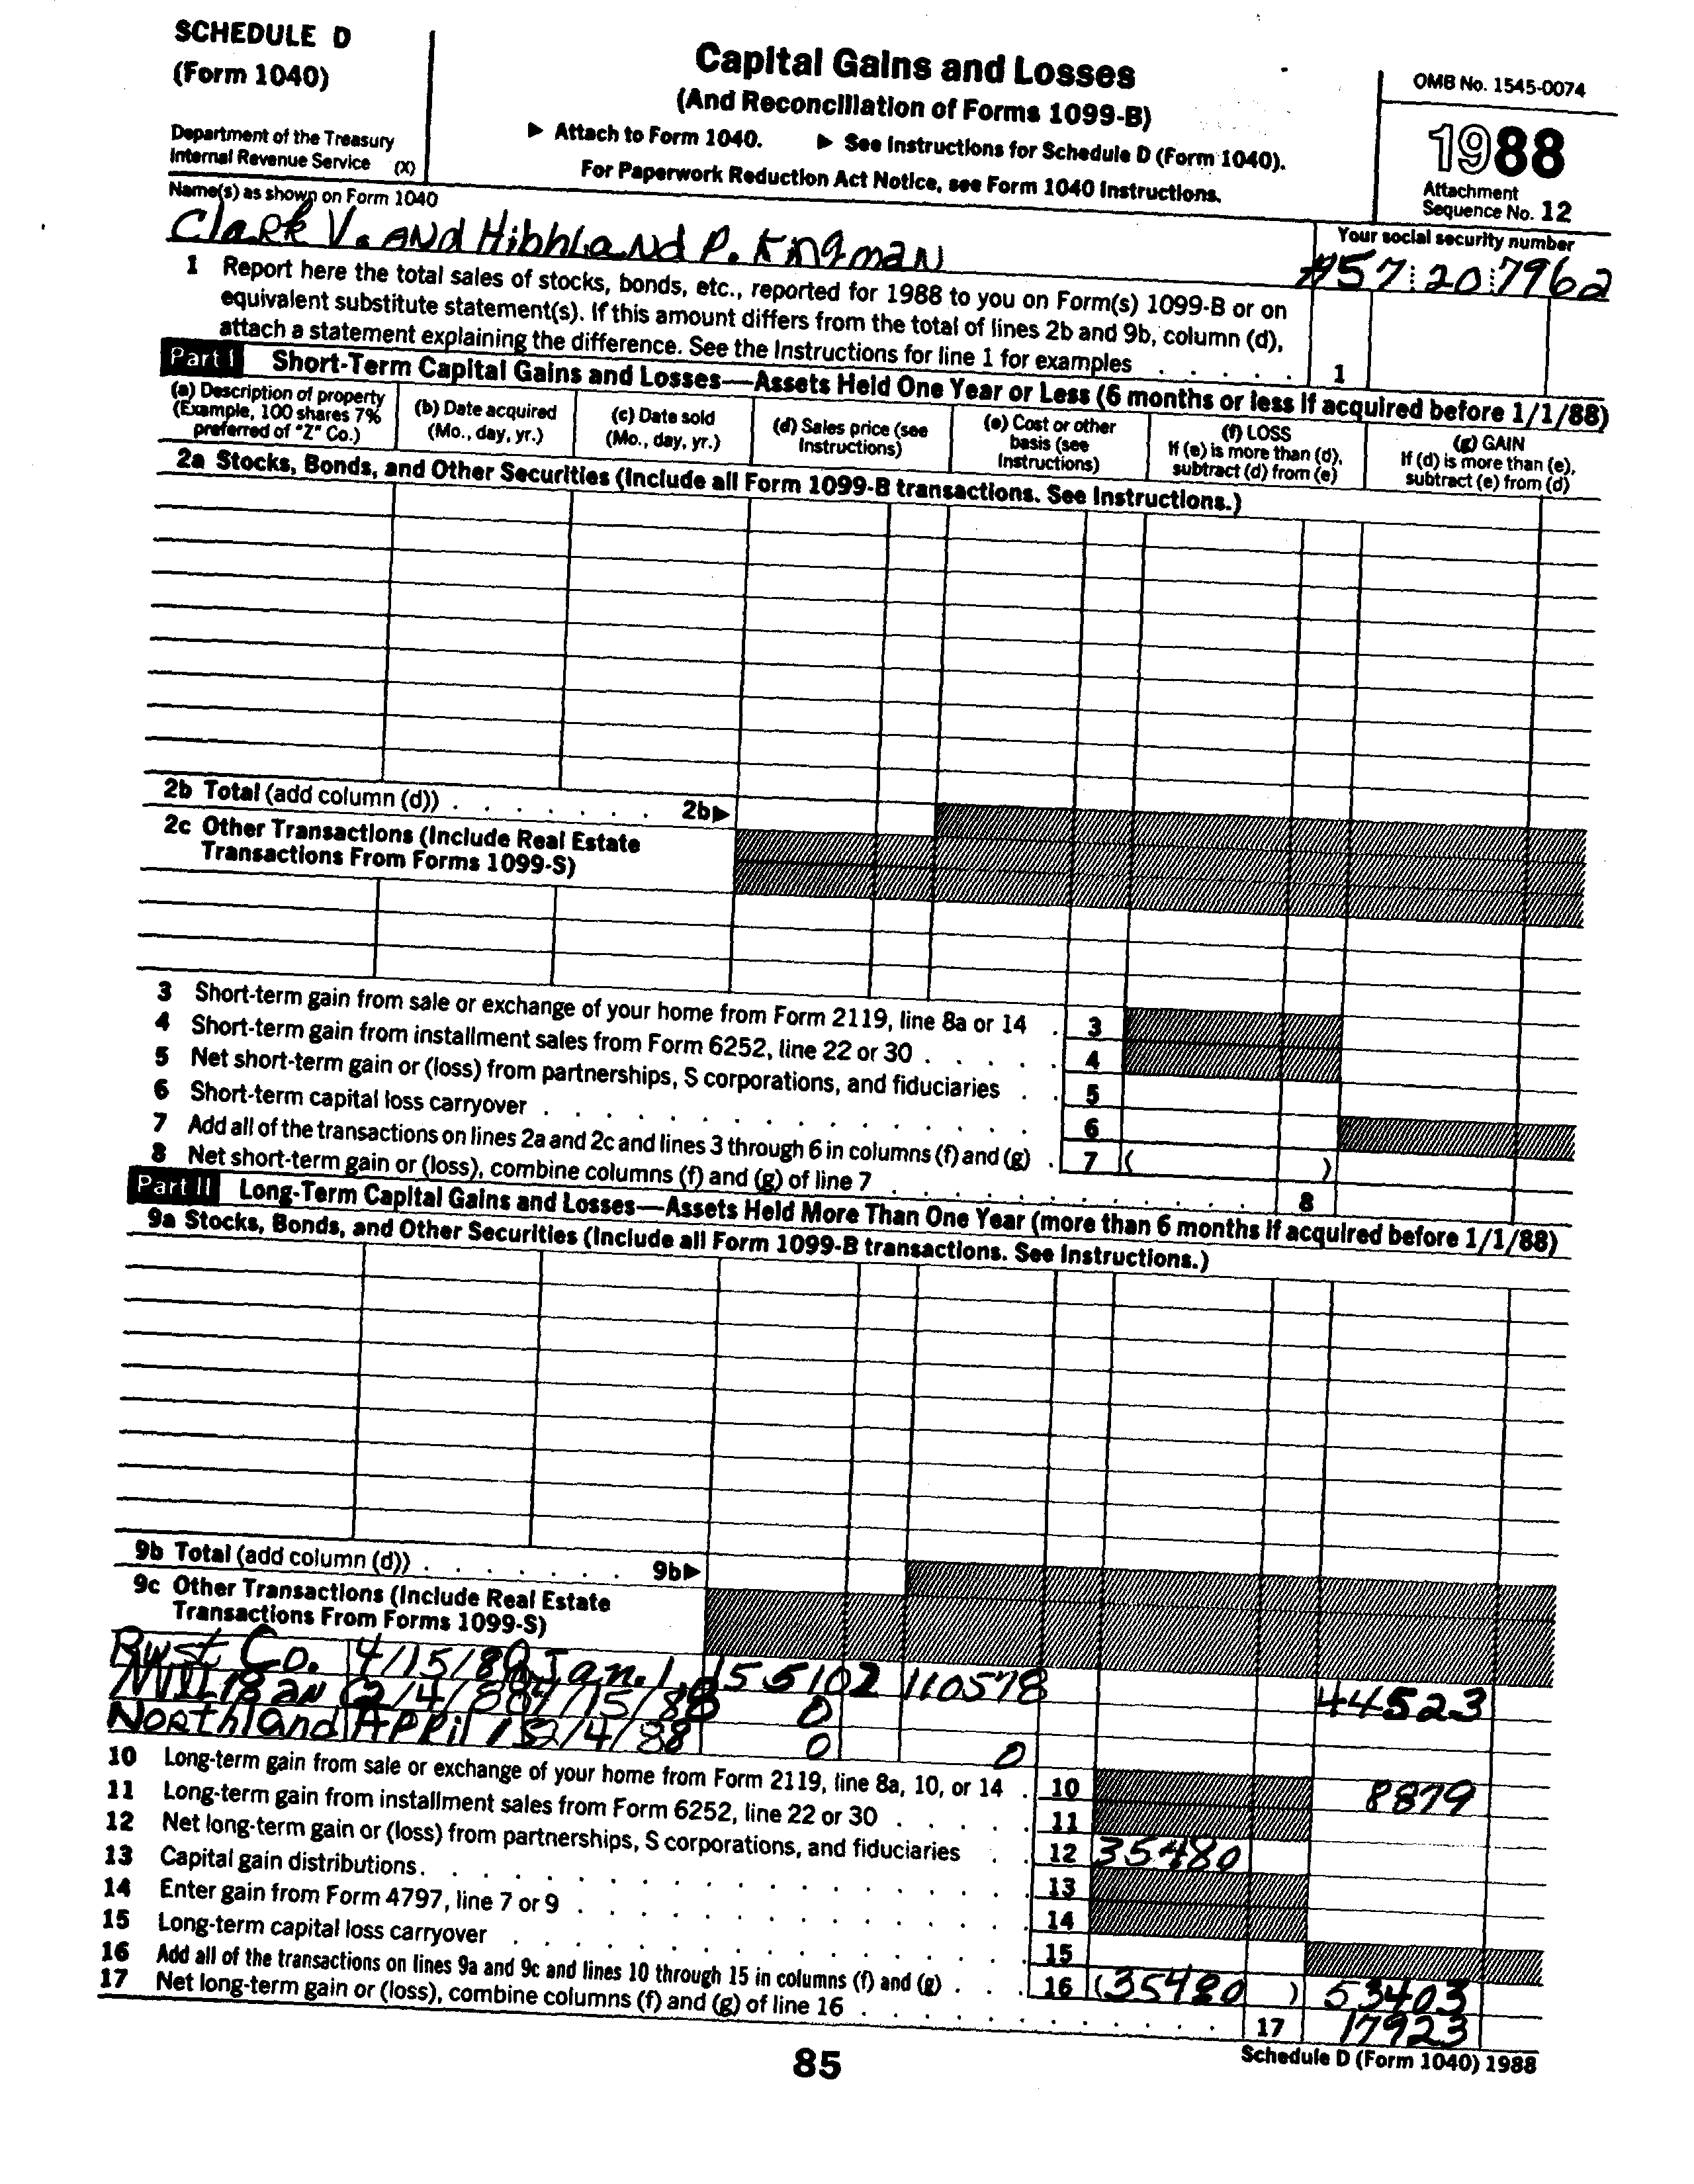 SCHEDULE D
(Form 1040)
Department of the Treasury
Internal Revenue Service (X)
Capital Gains and Losses
(And Reconciliation of Forms 1099-B)
▶ Attach to Form 1040. ▶ See Instructions for Schedule D (Form 1040).
For Paperwork Reduction Act Notice, see Form 1040 Instructions.
OMB No. 1545-0074
1988
Attachment
Sequence No. 12
Name(s) as shown on Form 1040
Clark V. AND Hibhland P. Kngman
Your social security number
457 20 7962
1 Report here the total sales of stocks, bonds, etc., reported for 1988 to you on Form(s) 1099-B or on
equivalent substitute statement(s). If this amount differs from the total of lines 2b and 9b, column (d),
attach a statement explaining the difference. See the Instructions for line 1 for examples . . . . . 1
Part I Short-Term Capital Gains and Losses—Assets Held One Year or Less (6 months or less if acquired before 1/1/88)
(a) Description of property
(Example, 100 shares 7%
preferred of "Z" Co.)
(b) Date acquired
(Mo., day, yr.)
(c) Date sold
(Mo., day, yr.)
(d) Sales price (see
Instructions)
(e) Cost or other
basis (see
Instructions)
(f) LOSS
If (e) is more than (d),
subtract (d) from (e)
(g) GAIN
If (d) is more than (e),
subtract (e) from (d)
2a Stocks, Bonds, and Other Securities (Include all Form 1099-B transactions. See Instructions.)
2b Total (add column (d)) . . . . . . . 2b▶
2c Other Transactions (Include Real Estate
Transactions From Forms 1099-S)
3 Short-term gain from sale or exchange of your home from Form 2119, line 8a or 14 . 3
4 Short-term gain from installment sales from Form 6252, line 22 or 30 . . . . . 4
5 Net short-term gain or (loss) from partnerships, S corporations, and fiduciaries . . 5
6 Short-term capital loss carryover . . . . . . . . . . . . . 6
7 Add all of the transactions on lines 2a and 2c and lines 3 through 6 in columns (f) and (g) . 7 ( )
8 Net short-term gain or (loss), combine columns (f) and (g) of line 7 . . . . . . . . . . . . 8
Part II Long-Term Capital Gains and Losses—Assets Held More Than One Year (more than 6 months if acquired before 1/1/88)
9a Stocks, Bonds, and Other Securities (Include all Form 1099-B transactions. See Instructions.)
9b Total (add column (d)) . . . . . . . 9b▶
9c Other Transactions (Include Real Estate
Transactions From Forms 1099-S)
Co. 4/15/80 Jan. 1, 155102 110578
2/4/80 4/15/88 0 44523
Northland April 15 2/4/88 0 0
10 Long-term gain from sale or exchange of your home from Form 2119, line 8a, 10, or 14 . 10 8879
11 Long-term gain from installment sales from Form 6252, line 22 or 30 . . . . . 11
12 Net long-term gain or (loss) from partnerships, S corporations, and fiduciaries . . 12 35480
13 Capital gain distributions . . . . . . . . . . . . . . . 13
14 Enter gain from Form 4797, line 7 or 9 . . . . . . . . . . . . 14
15 Long-term capital loss carryover . . . . . . . . . . . . . 15
16 Add all of the transactions on lines 9a and 9c and lines 10 through 15 in columns (f) and (g) . . . 16 (35480 ) 53403
17 Net long-term gain or (loss), combine columns (f) and (g) of line 16 . . . . . . . . . . . . 17 17923
85
Schedule D (Form 1040) 1988